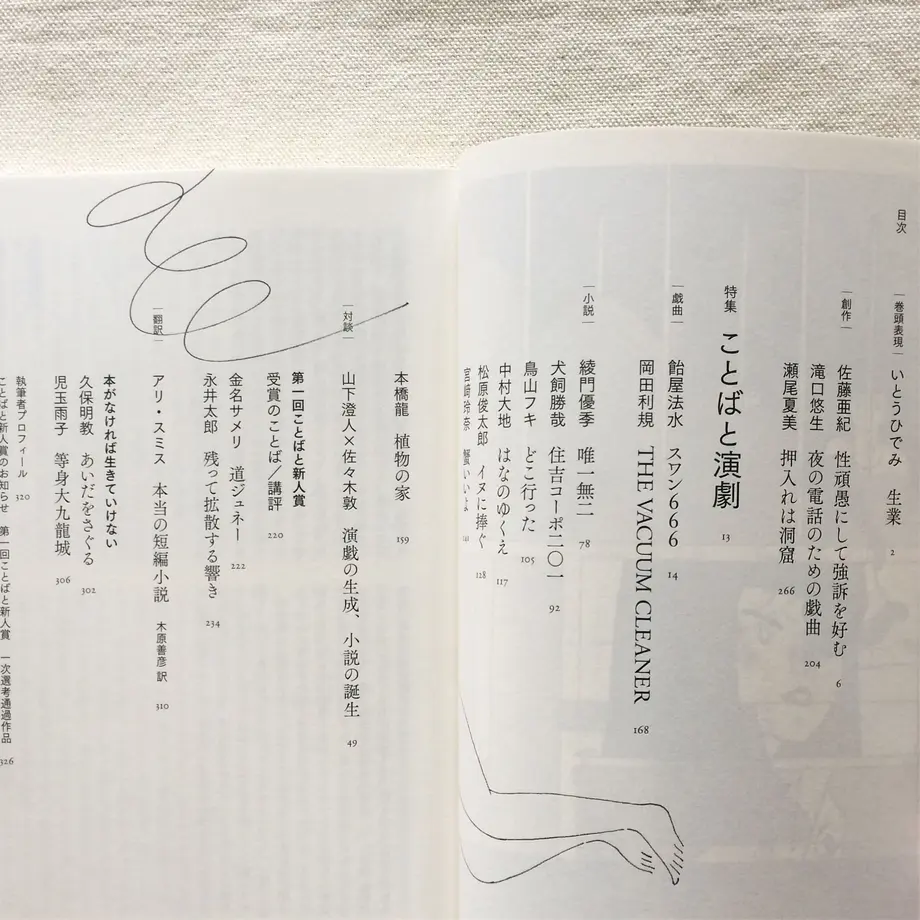 目次
巻頭表現
いとうひでみ 生業 2
創作
佐藤亜紀 性頑愚にして強訴を好む 6
滝口悠生 夜の電話のための戯曲 204
瀬尾夏美 押入れは洞窟 266
特集 ことばと演劇 13
戯曲
飴屋法水 スワン666 14
岡田利規 THE VACUUM CLEANER 168
小説
綾門優季 唯一無二 78
犬飼勝哉 住吉コーポ二〇一 92
鳥山フキ どこ行った 105
中村大地 はなのゆくえ 117
松原俊太郎 イヌに捧ぐ 128
宮崎玲奈
本橋龍 植物の家 159
対談
山下澄人×佐々木敦 演戯の生成、小説の誕生 49
第一回ことばと新人賞
受賞のことば/講評 220
金名サメリ 道ジュネー 222
永井太郎 残って拡散する響き 234
翻訳
アリ・スミス 本当の短編小説 木原善彦 訳 310
本がなければ生きていけない
久保明教 あいだをさぐる 302
児玉雨子 等身大九龍城 306
執筆者プロフィール 320
ことばと新人賞のお知らせ 第一回ことばと新人賞 一次選考通過作品 326